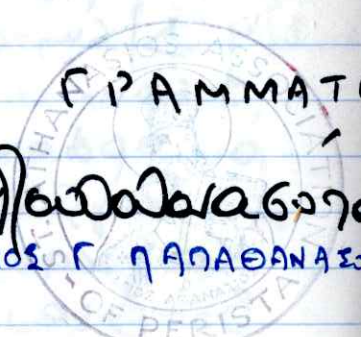 ΓΡΑΜΜΑΤ
ΟΣ Γ ΠΑΠΑΘΑΝΑΣ
ST. ATHANASIOS ASSOCIAT
OF PERISTA